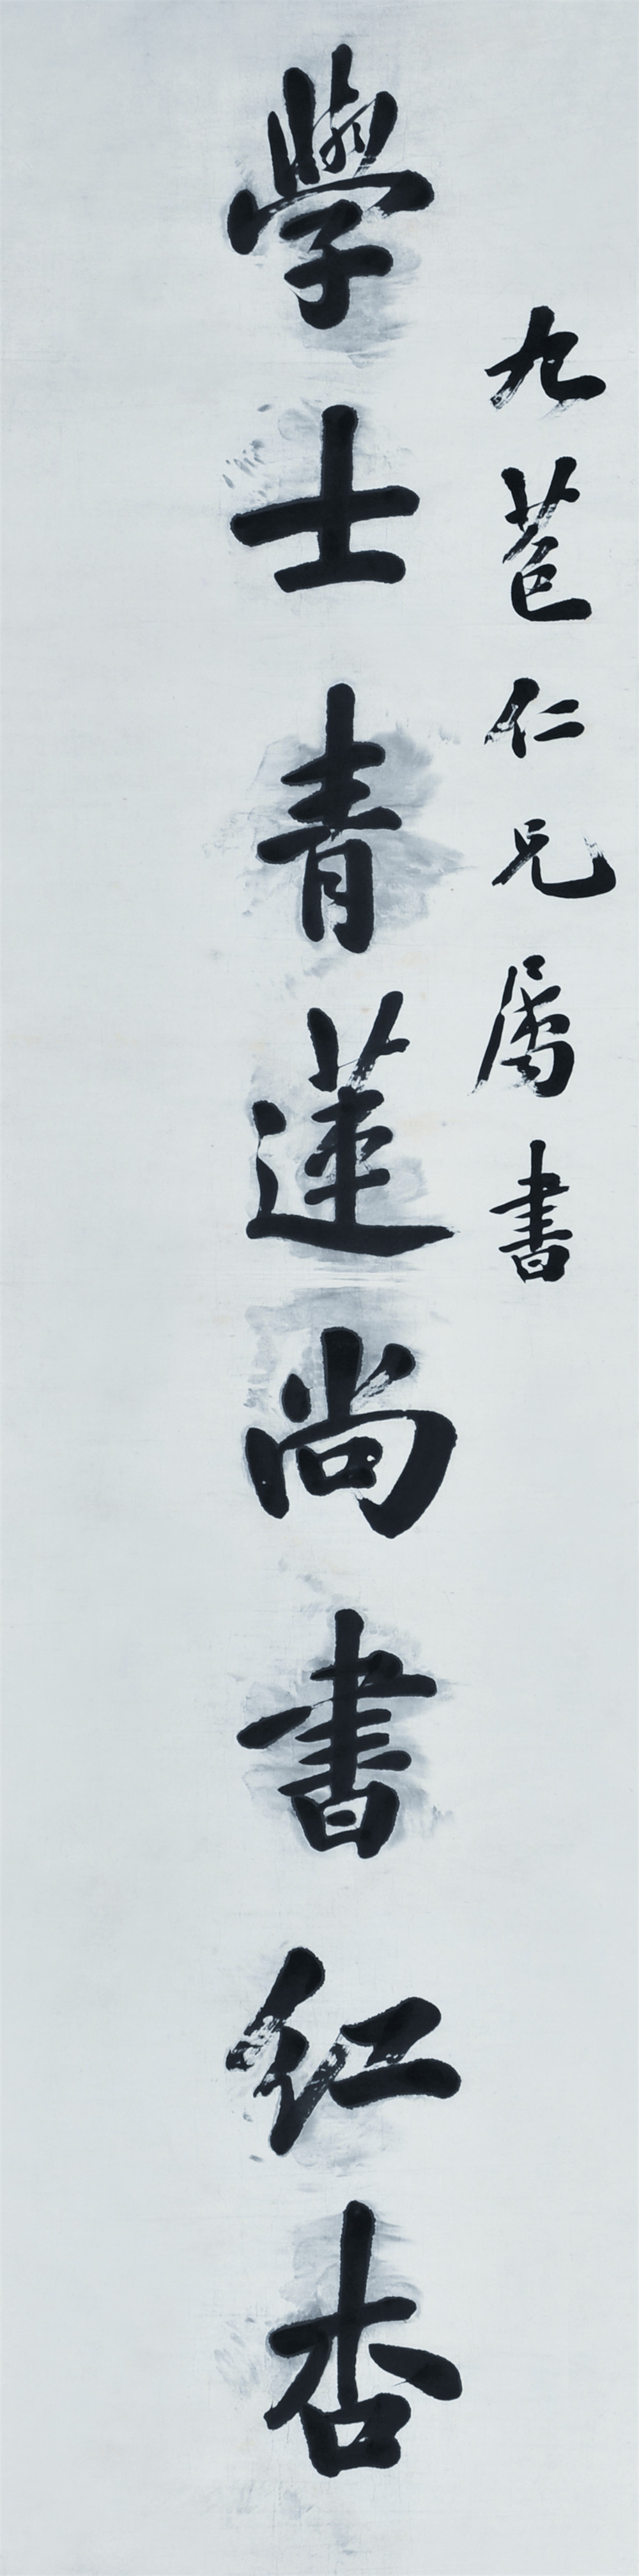 九苞仁兄属書
學士青蓮尚書紅杏